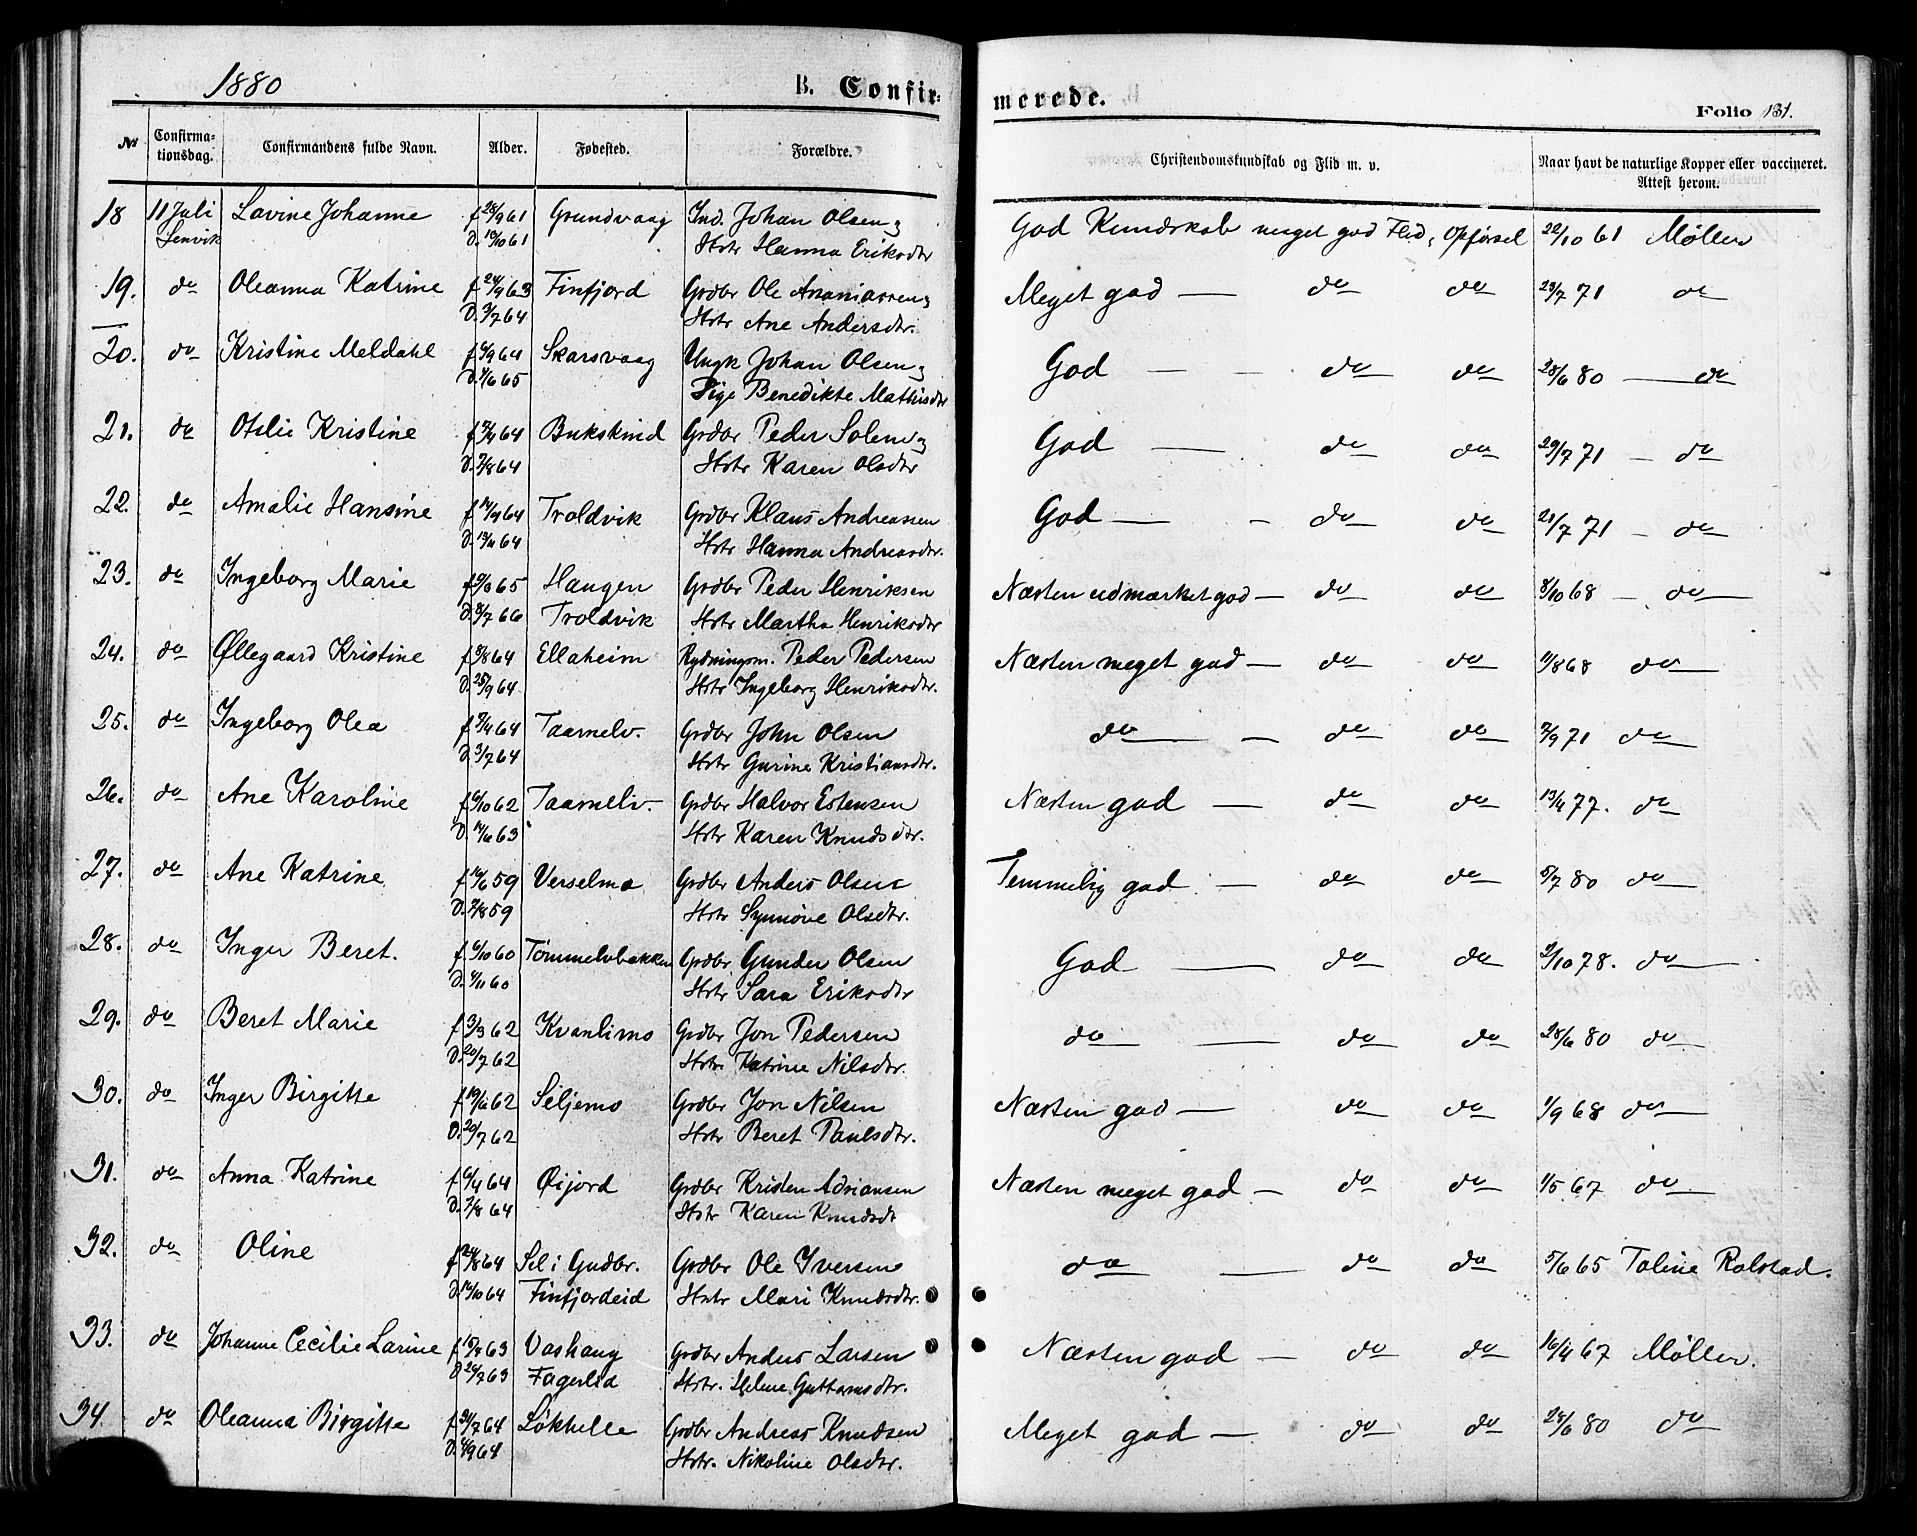 1880 B. Confir-
merede.
Folio 131.
№ Confirma-tionsdag. Confirmandens fulde Navn. Alder. Fødested. Forældre. Christendomskundskab og Flid m. v. Naar havt de naturlige Kopper eller vaccineret. Attest herom.
18 11 Juli Lavine Johanne f 28/9 61 Grundvaag Ind. Johan Olsen og God Kundskab meget god Flid, Opførsel 22/10 61 Møller
Lenvik D. 19/10 61 Hstr Hanna Eriksdtr
19. do Oleanna Katrine f 24/9 63 Finfjord Grdbr Ole Ananiassen og Meget god — do do 29/7 71 do
D. 3/7 64 Hstr Ane Andersdtr.
20. do Kristine Meldahl f 4/9 64 Skarsvaag Ungk Johan Olsen og God — — do do 28/6 80 — do
D. 7/6 65 Pige Benedikte Mathisdtr
21. do Otilie Kristine 64 Bukskind Grdbr Peder Solem og God — do do 29/7 71 — do
D. 7/8 64 Hstr Karen Olsdtr
22. do Amalie Hansine f 14/9 64 Troldvik Grdbr Klaus Andreassen God — - do do 21/7 71 — do
D. 13/11 64 Hstr Hanna Andreasdtr.
23. do Ingeborg Marie 65 Haugen Grdbr Peder Henriksen Næsten udmærket god — do do 8/10 68 — do
D. 8/7 66 Troldvik Hstr Martha Henriksdtr
24. do Øllegaard Kristine f 8/8 64 Ellaheim Rydningsm. Peder Pedersen Næsten meget god — do do 11/8 68 do
D. 25/9 64 Hstr Ingeborg Henriksdtr.
25. do Ingeborg Olea f 7/4 64 Taarnelv. Grdbr John Olsen do — do do 7/9 71 do
D. 3/7 64 Hstr Gurine Kristiansdtr.
26. do Ane Karoline f 6/10 62 Taarnelv. Grdbr Halvor Estensen Næsten god — do do 13/4 77. do
D. 14/6 63 Hstr Karen Knudsdtr.
27. do Ane Katrine f 19/6 59 Verselmo Grdbr Anders Olsen Temmelig god — do do 5/7 80 do
D. 7/8 59 Hstr Synnøve Olsdtr.
28. do Inger Beret. f 6/10 60 Tømmelvbakken Grdbr Gunder Olsen God — do do 2/10 78. do
D. 4/11 60 Hstr Sara Eriksdtr
29. do Beret Marie f 3/3 62 Kvanlimo Grdbr Jon Pedersen do — do do 28/6 80 do
D. 20/7 62 Hstr Katrine Nilsdtr.
30. do Inger Birgitte f 19/6 62 Seljemo Grdbr Jon Nilsen Næsten god — do do 1/9 68 do
D. 20/7 62 Hstr Beret Paulsdtr.
31. do Anna Katrine f 6/4 64 Øijord Grdbr Kristen Adriansen Næsten meget god — do do 1/5 67 do
D. 7/8 64 Hstr Karen Knudsdt
32. do Oline f 24/8 64 Sel i Gudbr. Grdbr Ole Iversen do — do do 5/6 65 Toline Rolstad.
D. 16/10 64 Finfjordeid Hstr Mari Knudsdtr.
33. do Johanne Cecilie Larine 63 Vashaug Grdbr Anders Larsen Næsten god — do do 16/4 67 Møller.
D 24/7 63 Fagerlid Hstr. Helene Guttormsdtr.
34. do Oleanna Birgitte f 31/7 64 Løkhelle Grdbr Andreas Knudsen Meget god — do do 28/6 80 do
D. 4/9 64 Hstr. Nikoline Olsdtr.